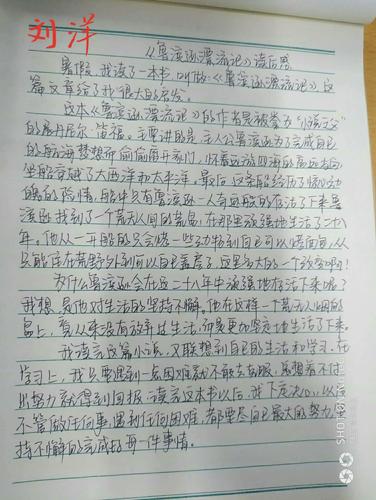 刘洋
《鲁滨逊漂流记》读后感
暑假,我读了一本书,叫做《鲁滨逊漂流记》,这
篇文章给了我很大的启发。
这本《鲁滨逊漂流记》的作者是被誉为"小说之父"
的丹尼尔·笛福。主要讲的是,主人公鲁滨逊为了完成自己
的航海梦想而偷偷离开家门,怀着远游四海的高远志向,
坐船穿越了大西洋和太平洋。最后,这条船经历了惊心动
魄的险情,船中只有鲁滨逊一人奇迹般的存活了下来。鲁
滨逊找到了一个荒无人烟的荒岛,在那里顽强地生活了二十八
年。他从一开始的只会烤一些动物到自己可以烤面包,从
只能住在荒野外到可以自己盖房子,这是多大的一个改变啊!
为什么鲁滨逊会在这二十八年中顽强地存活下来呢?
我想,是他对生活的坚持不懈。他在这样一个荒无人烟的
岛上,看从来没有放弃过生活,而是更加坚定地生活了下来。
我读完这篇小说,又联想到自己的生活和学习。在
学习上,我只要遇到一点困难就不敢去克服,总想着不付
出努力就得到回报。读完这本书以后,我下定决心,以后
不管做任何事,遇到任何困难,都要尽自己最大的努力,坚
持不懈的完成好每一件事情。
SHOT ON